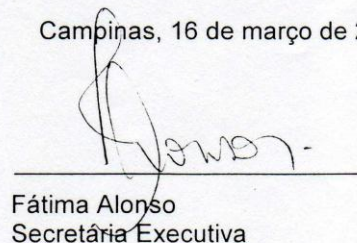 Campinas, 16 de março de
Alonso.
Fátima Alonso
Secretária Executiva